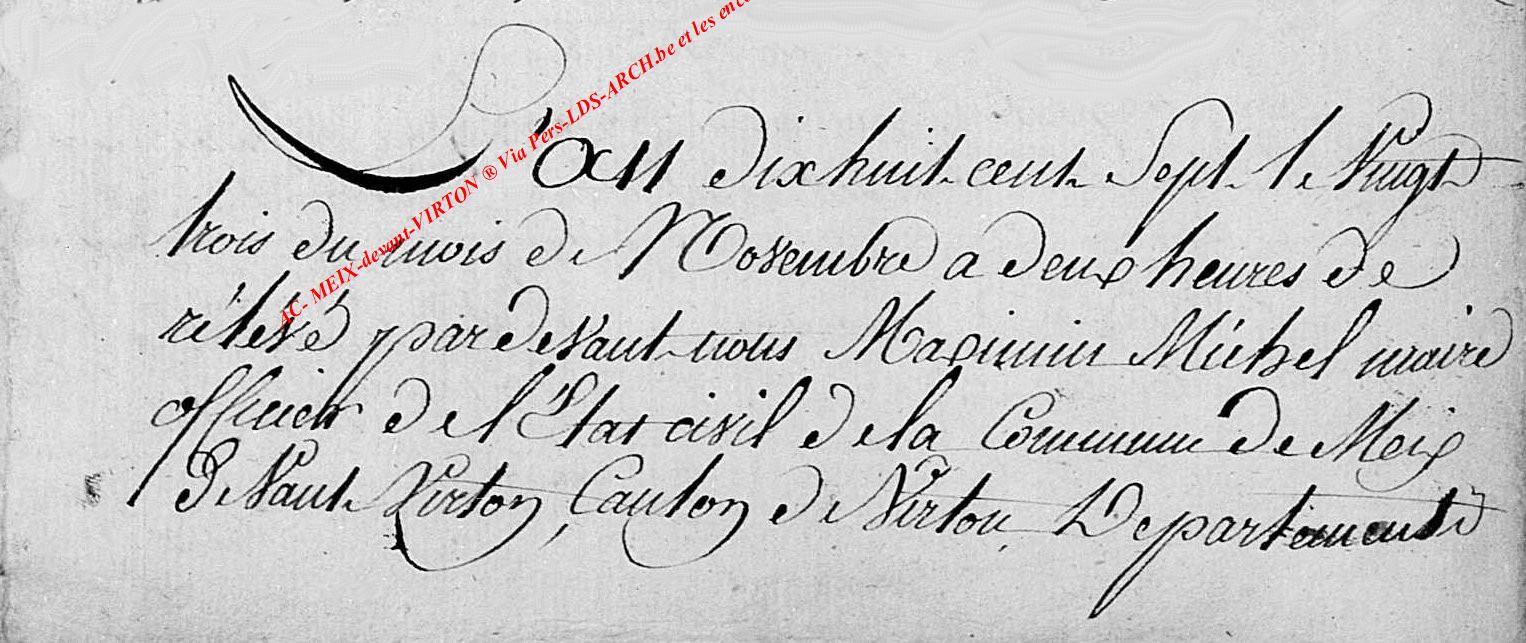 L'an dix huit cent Sept le Vingt
trois du mois de Novembre a deux heures de
rélevé par devant nous Maximin Michel maire
officier de l'Etat civil de la Commune de Meix
Devant Virton, Canton de Virton, Departement
AC- MEIX-devant-VIRTON ® Via Pers-LDS-ARCH.be et les enc